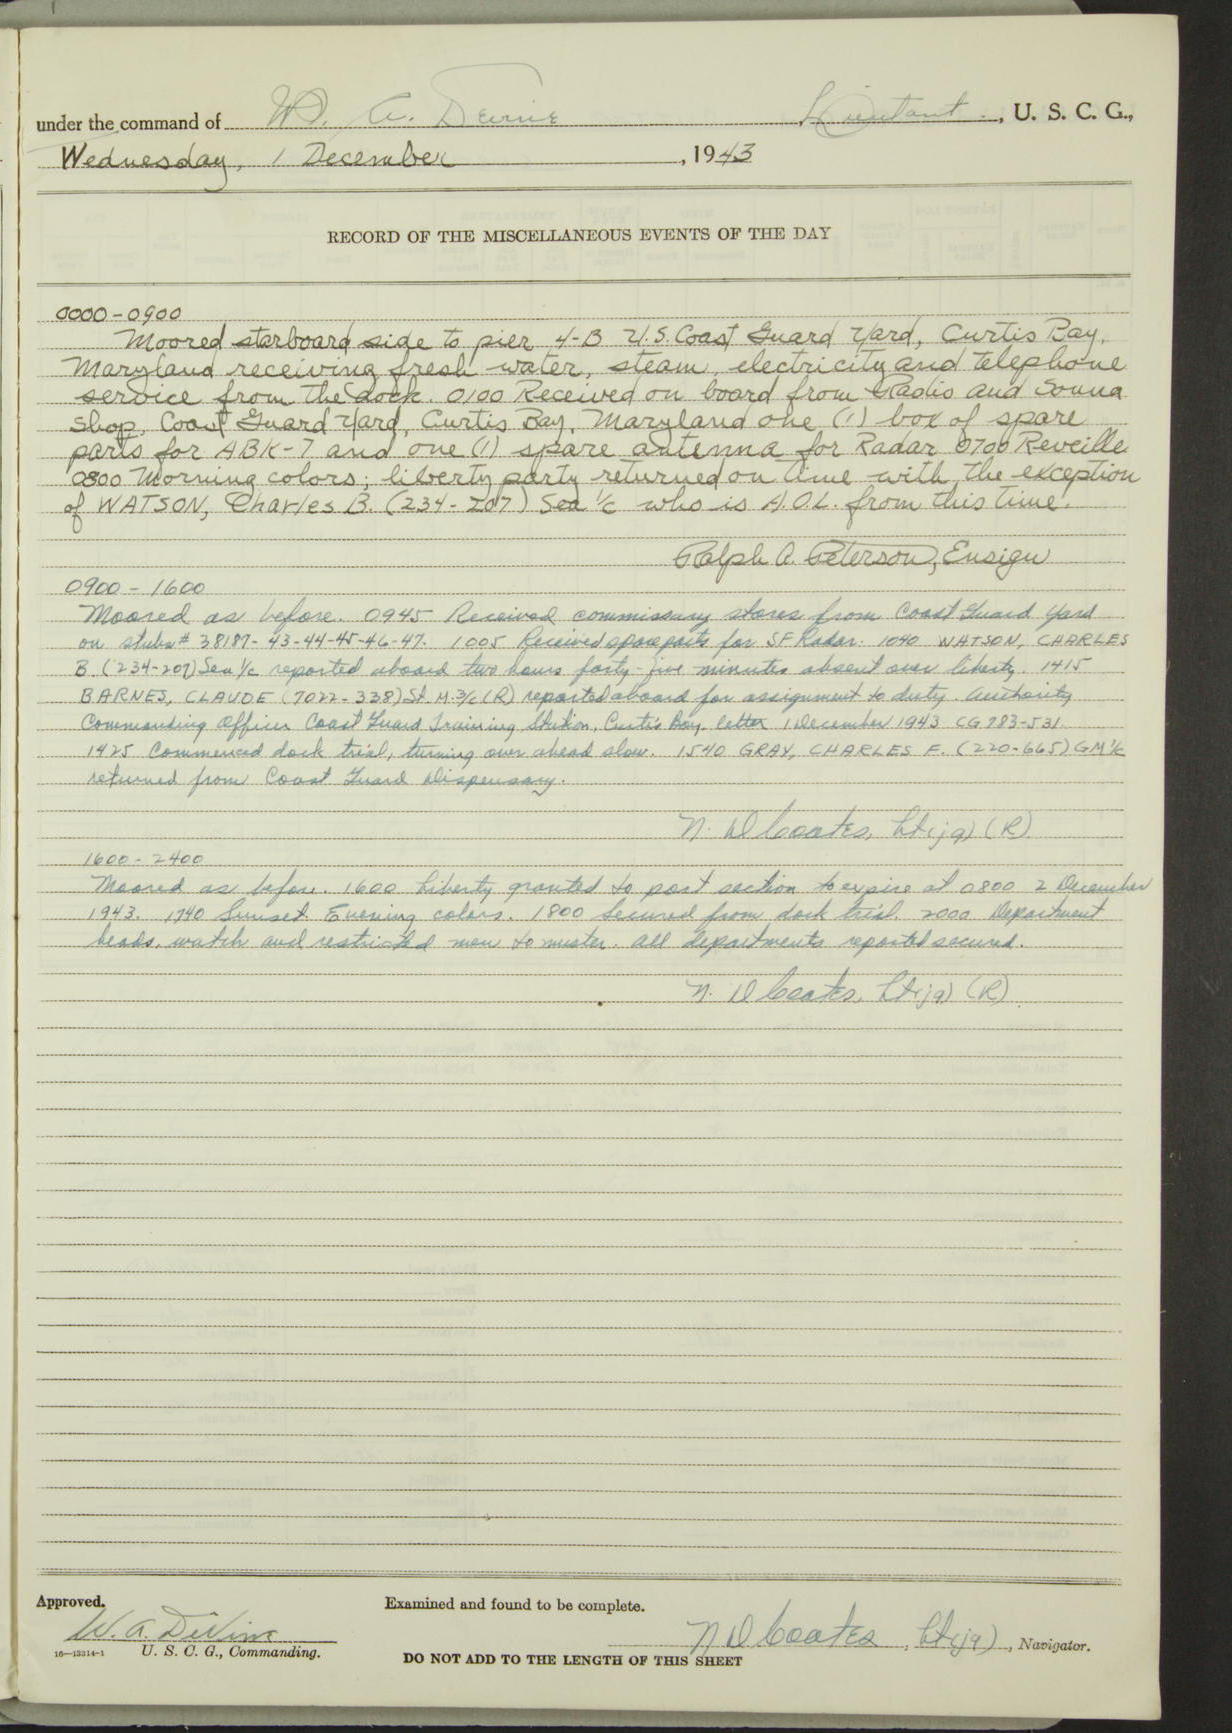 under the command of W. A. Devine Lieutant, U. S. C. G.,
Wednesday, 1 December, 1943
RECORD OF THE MISCELLANEOUS EVENTS OF THE DAY
0000-0900
Moored starboard side to pier 4-B U.S. Coast Guard Yard, Curtis Bay,
Maryland receiving fresh water, steam, electricity and telephone
service from the dock. 0100 Received on board from Radio and Sound
Shop, Coast Guard Yard, Curtis Bay, Maryland one (1) box of spare
parts for ABK-7 and one (1) spare antenna for Radar 0700 Reveille
0800 Morning colors; liberty party returned on time with the exception
of WATSON, Charles B. (234-207) Sea 1/c who is A.O.L. from this time.
Ralph A. Peterson, Ensign
0900-1600
Moored as before. 0945 Received commissary stores from Coast Guard Yard
on stubs# 38187-43-44-45-46-47. 1005 Received spare parts for SF Radar. 1040 WATSON, CHARLES
B. (234-207) Sea 1/c reported aboard two hours forty-five minutes absent over liberty. 1415
BARNES, CLAUDE (7022-338) St. M. 3/c (R) reported aboard for assignment to duty. Authority
Commanding Officer Coast Guard Training Station, Curtis Bay, letter 1 December 1943 CG783-531
1425 Commenced dock trial, turning over ahead slow. 1540 GRAY, CHARLES F. (220-665) GM 1/c
returned from Coast Guard Dispensary.
N. D Coates, Lt(jg) (R)
1600-2400
Moored as before. 1600 Liberty granted to port section to expire at 0800 2 December
1943. 1740 Sunset. Evening colors. 1800 Secured from dock trial. 2000 Department
heads, watch and restricted men to muster. All departments reported secured.
N. D Coates, Lt(jg) (R)
Approved. Examined and found to be complete.
W. A. DeVine N D Coates, Lt(jg), Navigator.
16—13314-1 U. S. C. G., Commanding.
DO NOT ADD TO THE LENGTH OF THIS SHEET